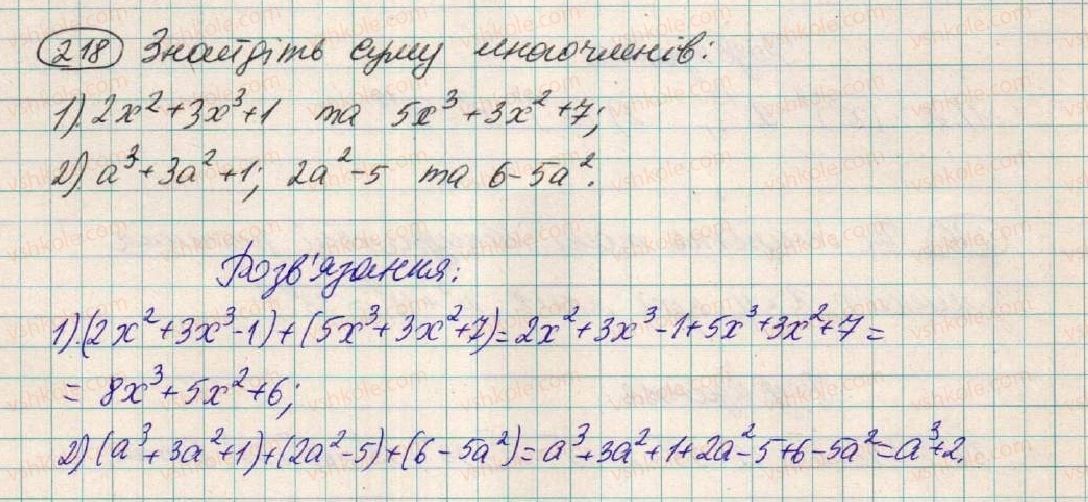 218 Знайдіть суму многочленів:
1) 2x² + 3x³ + 1 та 5x³ + 3x² + 7;
2) a³ + 3a² + 1; 2a² - 5 та 6 - 5a².
Розв'язання:
1) (2x² + 3x³ - 1) + (5x³ + 3x² + 7) = 2x² + 3x³ - 1 + 5x³ + 3x² + 7 =
= 8x³ + 5x² + 6;
2) (a³ + 3a² + 1) + (2a² - 5) + (6 - 5a²) = a³ + 3a² + 1 + 2a² - 5 + 6 - 5a² = a³ + 2.
vshkole.com